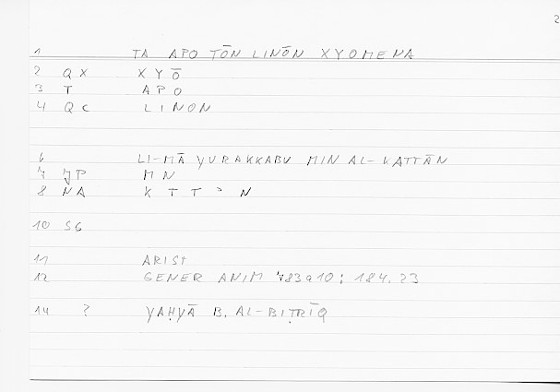 2
1 TA APO TŌN LINŌN XYOMENA
2 QX XYŌ
3 T APO
4 QC LINON
6 LI-MĀ YURAKKABU MIN AL-KATTĀN
7 JP MN
8 NA KTTʾN
10 SG
11 ARIST
12 GENER ANIM 783a10; 184.23
14 ? YAḤYĀ B. AL-BIṬRĪQ